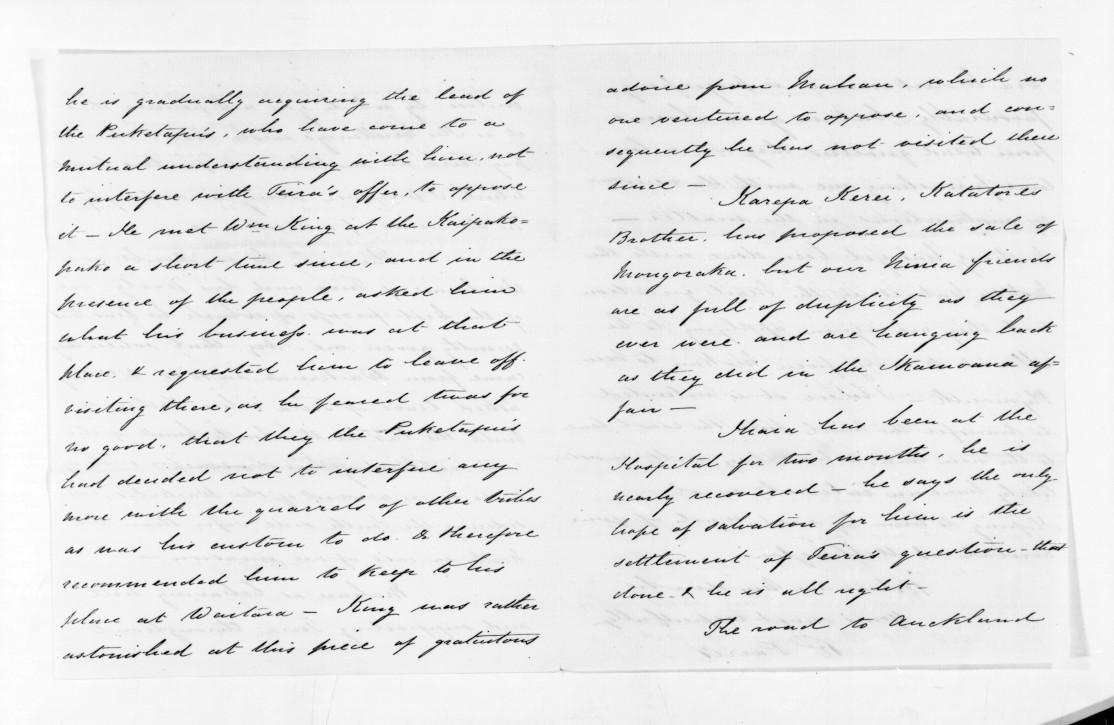 he is gradually acquiring the lead of
the Puketapu's, who have come to a
mutual understanding with him, not
to interfere with Teira's offer, to oppose
it – He met Wm King at the Kaipako=
pako a short time since, and in the
presence of the people, asked him
what his business was at that
place. & requested him to leave off
visiting there, as he feared twas for
no good. that they the Puketapu's
had decided not to interfere any
more with the quarrels of other tribes
as was his custom to do. & therefore
recommended him to keep to his
place at Waitara – King was rather
astonished at this piece of gratuitous
advice from Mahau, which no
one ventured to oppose, and con=
sequently he has not visited there
since –
Karepa Kerei, Katatore's
Brother, has proposed the sale of
Mongoraka. but our Ninia friends
are as full of duplicity as they
ever were. and are hanging back
as they did in the Ikamoana af-
fair –
Ihaia has been at the
Hospital for two months, he is
nearly recovered – he says the only
hope of salvation for him is the
settlement of Teira's question – that
done. & he is all right –
The road to Auckland